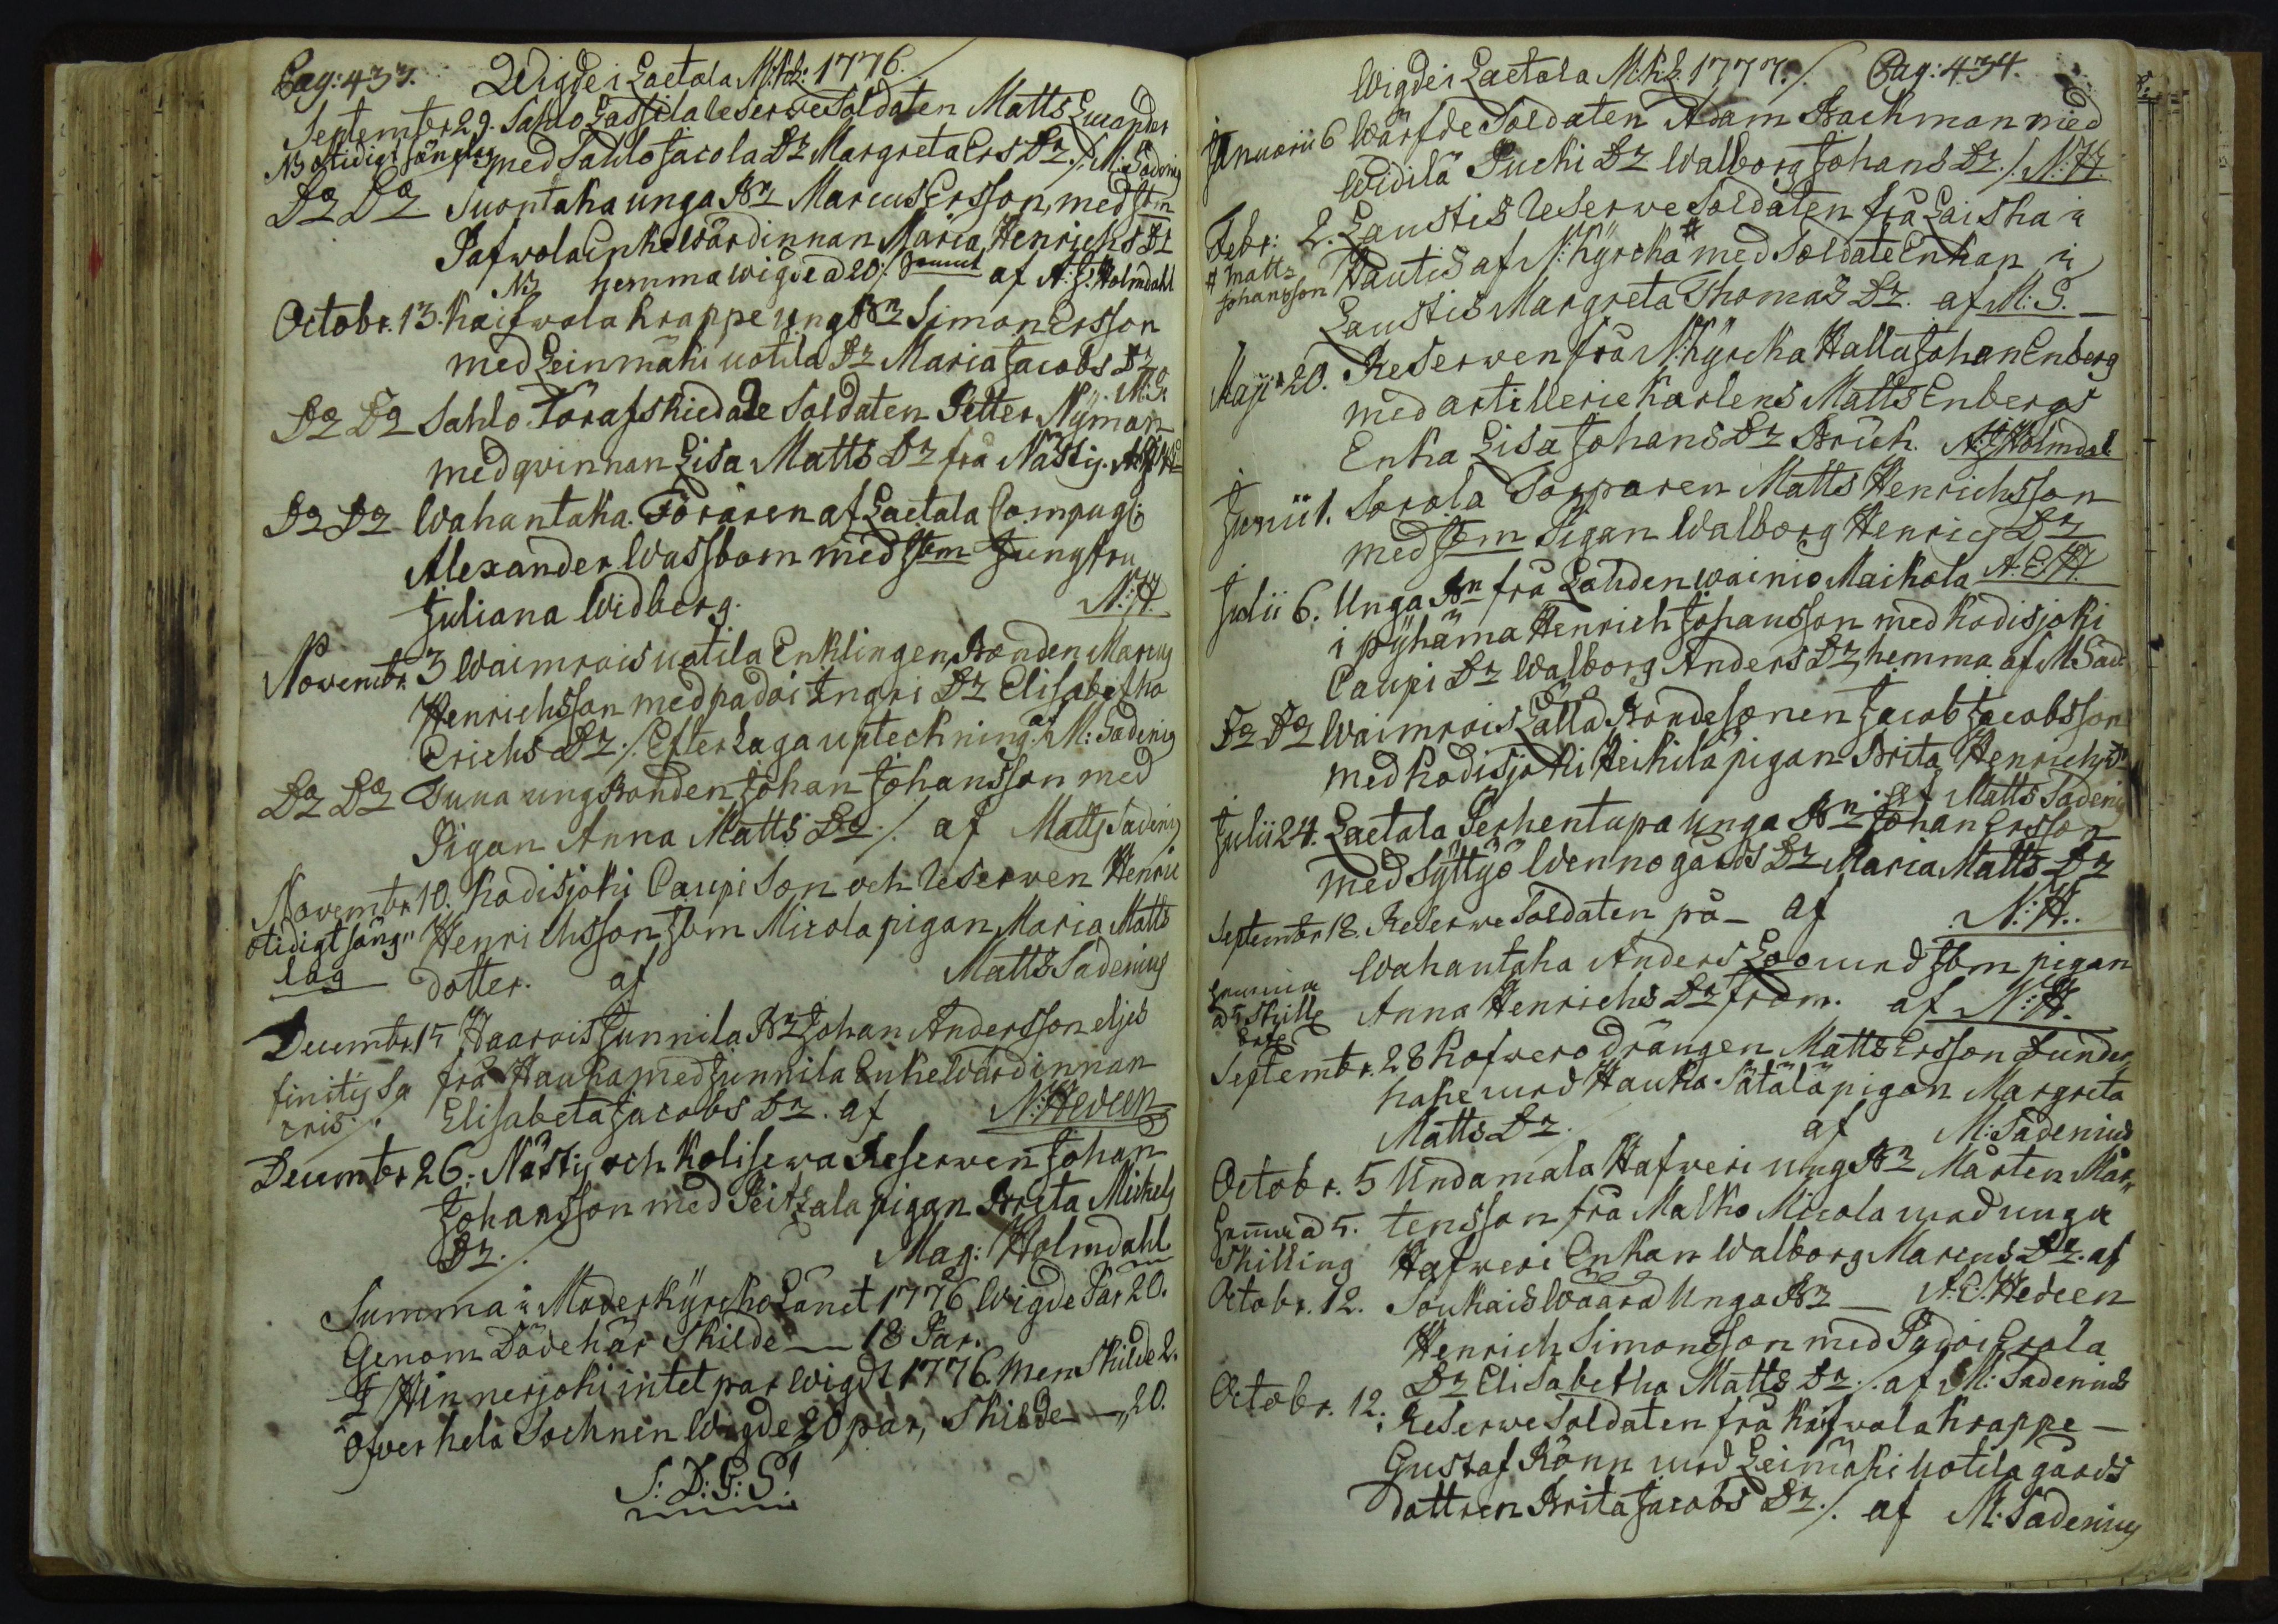 Pag: 433. Wigde i Laetala M:k: 1776.
Septembr 29. Sahlo Lassila ReserveSoldaten Matts Luander
NB otidigt sänglag med Sahlo Jacola Dr Margreta Ers Dr. / M: Sadenig
Do Do Suontaka unga Bn Marcus Ersson, med sbm
Pafwola EnkeWärdinnan Maria Henrichs Dr
NB hemma wigde a 20/ af N: H: Holmdahl
Octobr. 13. Kaifwola Krappe unga Bn Simon Ersson
med Leinmäki uotila Dr Maria Jacobs Dr
M: S.
Do Do Sahlo Förafskiedade Soldaten Petter Nyman
med qvinnan Lisa Matts Dr frå Nästij.
Do Do Wahantaka. Föraren af Laetala Compagi:
Alexander Wassbom med sbm Jungfru
Juliana Widberg. N: H.
Novembr. 3 Waimrois uotila Enklingen Bonden Marcus
Henrichsson med padoi Ingri Dr Elisabetha
Erichs Dr. / Efter laga upteckning. af M: Sadenig
Do Do Tuna ung Bonden Johan Johansson med
Pigan Anna Matts Dr. / af Matts Sadenig
Novembr. 10. Kodisjoki Caupi Son och Reserven Henric
otidigt säng" Henrichsson sbm Micola pigan Maria Matts
lag dotter. af Matts Sadenius
Decembr. 15 Haarois Junnila Bn Johan Andersson eljes
finitis Sa frå Hauka med Junnila EnkeWärdinnan
cris. /. Elisabeta Jacobs Dr. af N: Hedeen
Decembr 26. Nästij och Kolisewa Reserven Johan
Johansson med Peitzala pigan Brita Mickels
Dr. /. Mag: Holmdahl
Summa i Moderkyrcko Länet 1776 Wigde Par 20.
Genom Döde här Skilde — 18 Par.
I Hinnerjoki intet par Wigdt 1776. men Skilde 2.
Öfver hela Sochnen Wigde 20 par, Skilde — „ 20.
S: D: G: S!
Wigde i Laetala M:k: 1777. /. Pag: 434.
Januarii 6 Wärfde Soldaten Adam Backman med
Widilä Pucki Dr Walborg Johans Dr. /. N: H.
Febr: 2. Laustis Reserwe Soldaten frå Laiska i
# Matts Hautis af N: Kyrcka # med Soldate Enkan i
Johansson Laustis Margreta Thomas Dr. af M: S. —
Maji 20. Reserwen frå N: Kyrcka Halla Johan Enberg
med artillerie Karlens Matts Enbergs
Enka Lisa Johans Dr Brück. N: Holmdal
Junii 1. Sorola Torparen Matts Henrichsson
med sbm Pigan Walborg Henrics Dr
Julii 6. Unga Bn frå Lahdenwainio Maikola A. E. H.
i pyhäma Henrich Johansson med Kodisjoki
Caupi Dr Walborg Anders Dr, hemma af M. Sad
Do Do Waimrois Lalla Bondesonen Jacob Jacobsson
med Kodisjoki Heikilä pigan Brita Henrichs Dr
af Matts Sadenig
Julii 24. Laetala Perkentupa unga Bn Johan Ersson
med Syttyö Wenno gårds Dr Maria Matts Dr
Septembr 18. Reserwe Soldaten på — af N: H.
Wahantaka Anders Loo med sbm pigan
a 5 skille Anna Henrichs Dr from. af N: H.
Septembr. 28 Kofwero Drängen Matts Ersson Sunder
kake med Hauka Sätälä pigan Margreta
Matts Dr. af M: Sadenius
Octobr. 5 Undamala Hafweri ung Bn Mårten Mår„
Hemma a 5. tensson frå Malko Micola med unga
Skilling Hafweri Enkan Walborg Marcus Dr. af
Octobr. 12. Soukais Waara Unga Bn — A. E. Hedeen
Henrich Simonsson med Padoi Erola
Dr Elisabetha Matts Dr. /. af M: Sadenius
Octobr. 12. Reserwe Soldaten frå Kaifwola Krappe —
Gustaf Rönn med Leimäki Uotila gårds
dottren Brita Jacobs Dr. /. af M: Sadenius